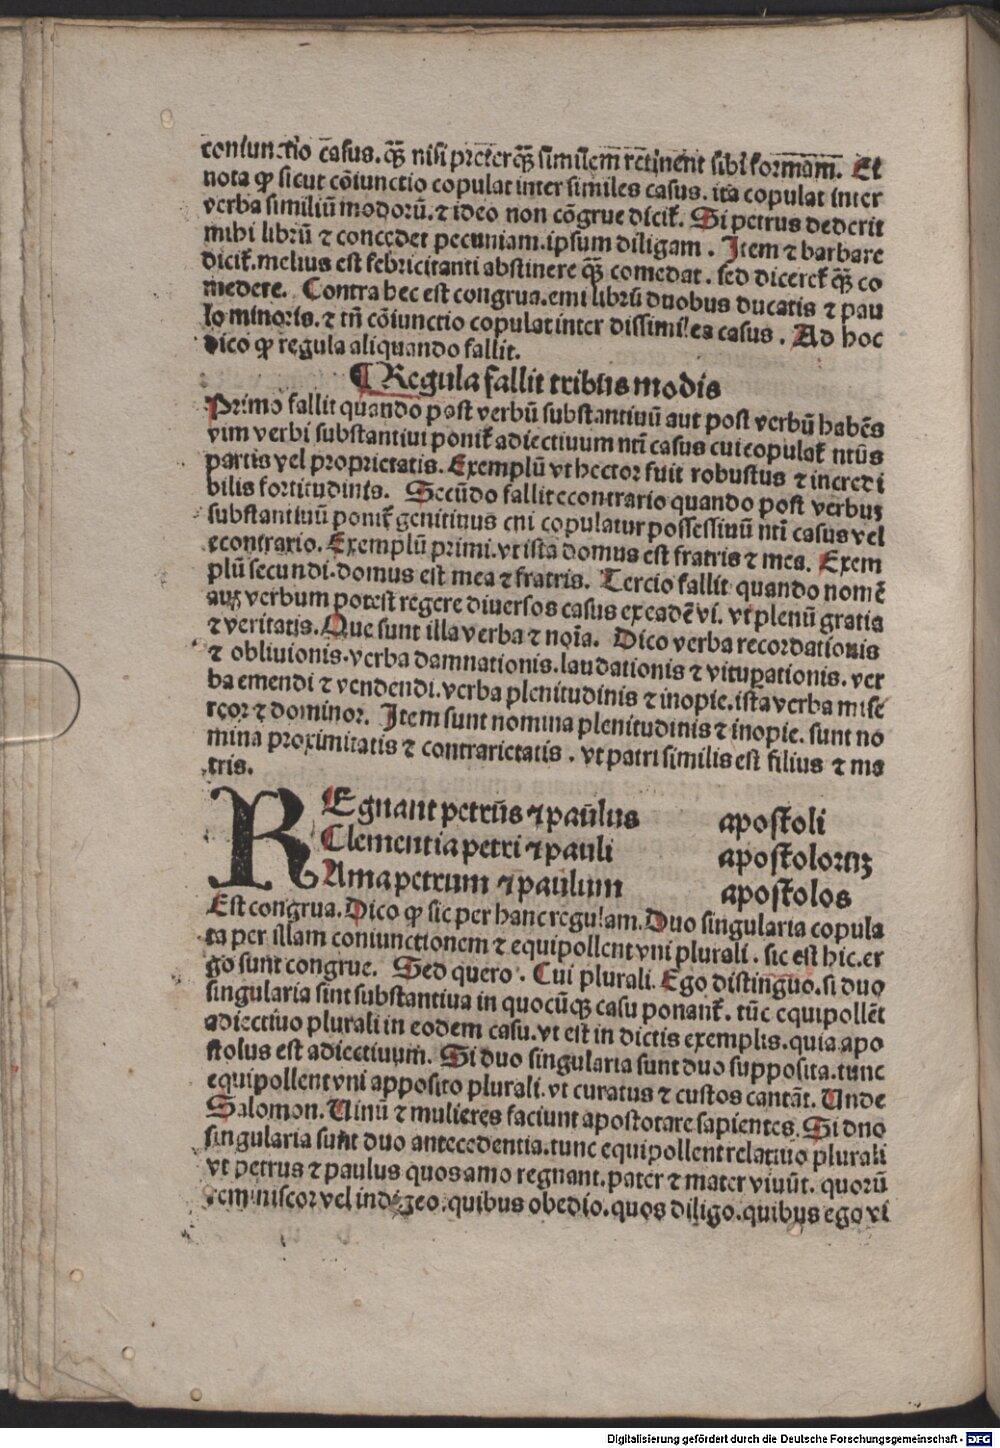 coniunctio casus. qƷ̄ nisi preterqƷ̄ similem retinent sibi formam. Et
nota ꝙ sicut cōiunctio copulat inter similes casus. ita copulat inter
verba similiū modorū. ⁊ ideo non cōgrue dicit̄. Si petrus dederit
mihi librū ⁊ concedet pecuniam. ipsum diligam. Item ⁊ barbare
dicit̄. melius est febricitanti abstinere qƷ̄ comedat. sed diceret̄ qƷ̄ co
medere. Contra hec est congrua. emi librū duobus ducatis ⁊ pau
lo minoris. ⁊ tñ cōiunctio copulat inter dissimiles casus. Ad hoc
dico ꝙ regula aliquando fallit.
¶ Regula fallit tribus modis
Primo fallit quando post verbū substantiuū aut post verbū habēs
vim verbi substantiui ponit̄ adiectiuum ntī casus cui copulat̄ ntūs
partis vel proprietatis. Exemplū vt hector fuit robustus ⁊ incredi
bilis fortitudinis. Secūdo fallit econtrario quando post verbuꝫ
substantiuū ponit̄ genitiuus cui copulatur possessiuū ntī casus vel
econtrario. Exemplū primi. vt ista domus est fratris ⁊ mea. Exem
plū secundi. domus est mea ⁊ fratris. Tercio fallit quando nomē
auꝫ verbum potest regere diuersos casus ex eadē vi. vt plenū gratia
⁊ veritatis. Que sunt illa verba ⁊ noīa. Dico verba recordationis
⁊ obliuionis. verba damnationis. laudationis ⁊ vituꝑationis. ver
ba emendi ⁊ vendendi. verba plenitudinis ⁊ inopie. ista verba mise
reor ⁊ dominor. Item sunt nomina plenitudinis ⁊ inopie. sunt no
mina proximitatis ⁊ contrarietatis. vt patri similis est filius ⁊ ma
tris.
REgnant petrus ⁊ paulus apostoli
Clementia petri ⁊ pauli apostoloꝝ
Ama petrum ⁊ paulum apostolos
Est congrua. Dico ꝙ sic per hanc regulam. Duo singularia copula
ta per illam coniunctionem ⁊ equipollent vni plurali. sic est hic. er
go sunt congrue. Sed quero. Cui plurali. Ego distinguo. si duo
singularia sint substantiua in quocūqꝫ casu ponant̄. tūc equipollēt
adiectiuo plurali in eodem casu. vt est in dictis exemplis. quia apo
stolus est adiectiuum. Si duo singularia sunt duo supposita. tunc
equipollent vni apposito plurali. vt curatus ⁊ custos cantāt. Unde
Salomon. Uinū ⁊ mulieres faciunt apostotare sapientes. Si duo
singularia sunt duo antecedentia. tunc equipollent relatiuo plurali
vt petrus ⁊ paulus quos amo regnant. pater ⁊ mater viuūt. quorū
reminiscor vel indigeo. quibus obedio. quos diligo. quibus ego vi
Digitalisierung gefördert durch die Deutsche Forschungsgemeinschaft - DFG